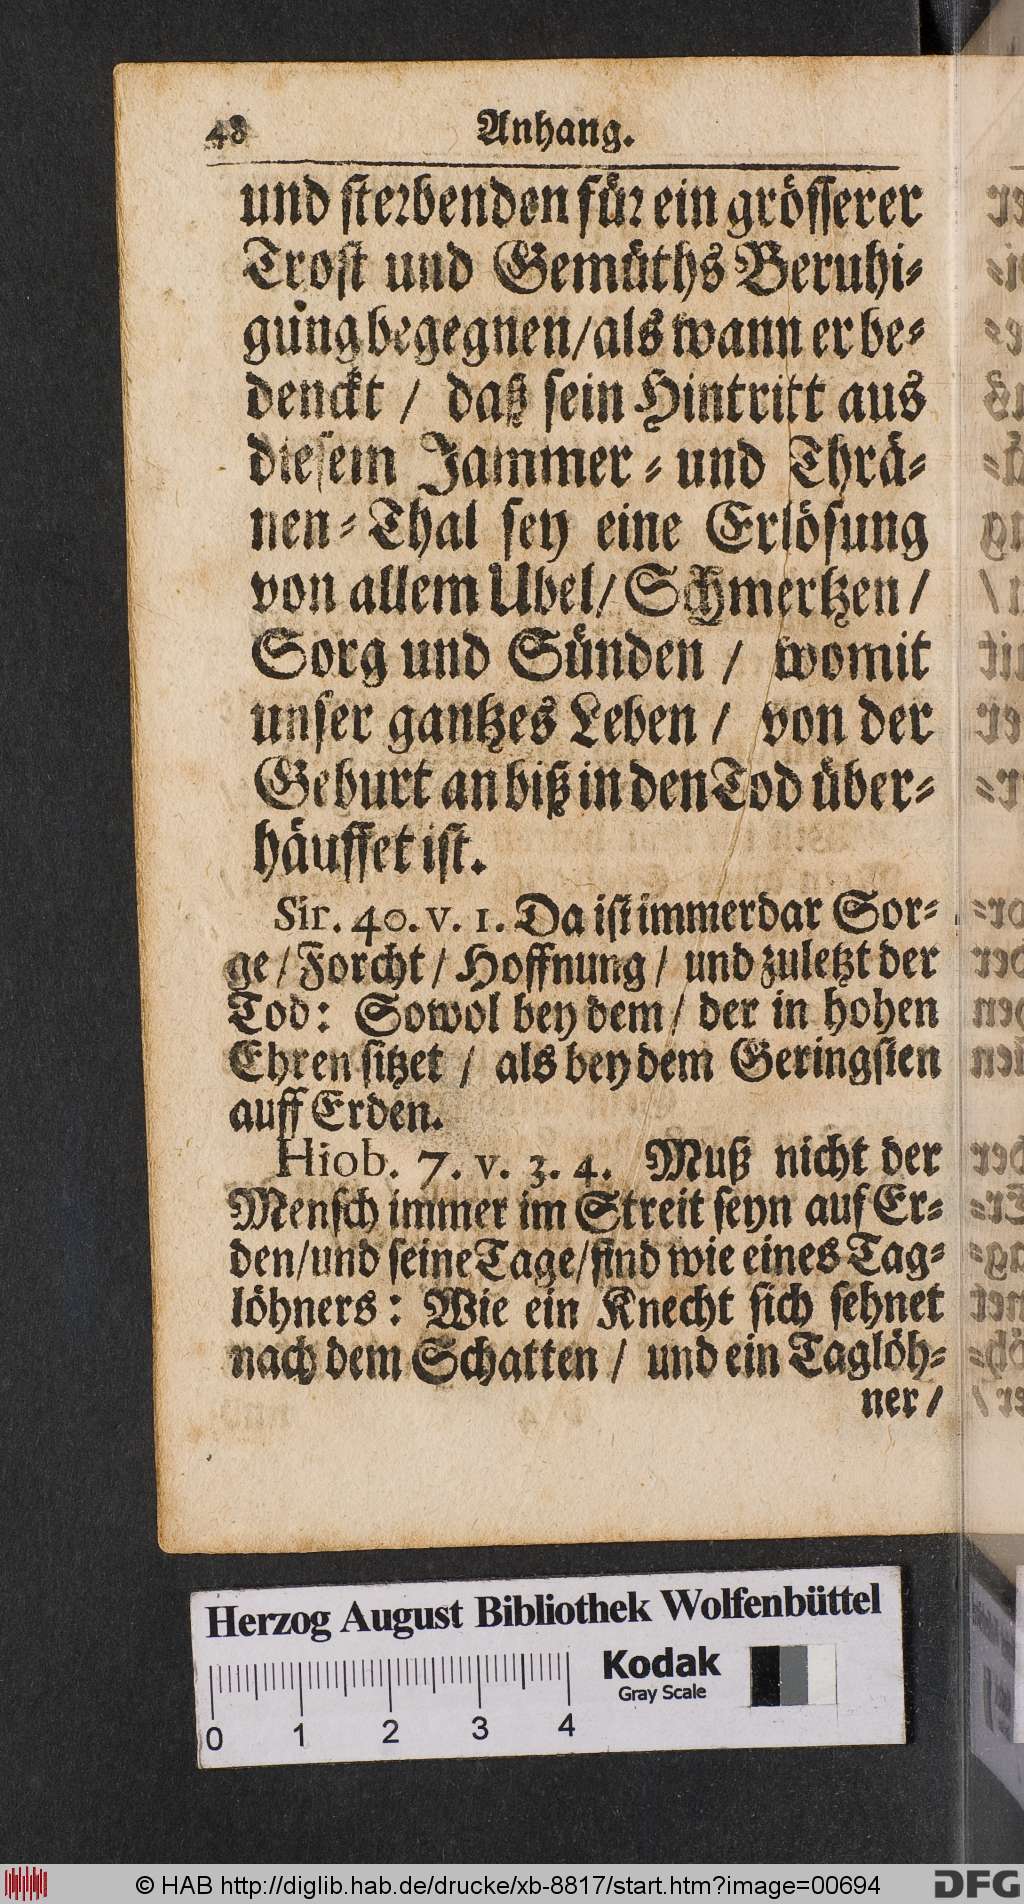 48
Anhang.
und sterbenden für ein grösserer
Trost und Gemüths Beruhi-
gung begegnen/ als wann er be-
denckt / daß sein Hintritt aus
diesem Jammer- und Thrä-
nen-Thal sey eine Erlösung
von allem Ubel/ Schmertzen /
Sorg und Sünden / womit
unser gantzes Leben / von der
Geburt an biß in den Tod über-
häuffet ist.
Sir. 40. v. 1. Da ist immerdar Sor-
ge / Forcht / Hoffnung / und zuletzt der
Tod: Sowol bey dem / der in hohen
Ehren sitzet / als bey dem Geringsten
auff Erden.
Hiob. 7. v. 3. 4. Muß nicht der
Mensch immer im Streit seyn auf Er-
den/ und seine Tage/ sind wie eines Tag-
löhners: Wie ein Knecht sich sehnet
nach dem Schatten / und ein Taglöh-
ner /
Herzog August Bibliothek Wolfenbüttel
Kodak
Gray Scale
0 1 2 3 4
© HAB http://diglib.hab.de/drucke/xb-8817/start.htm?image=00694
DFG